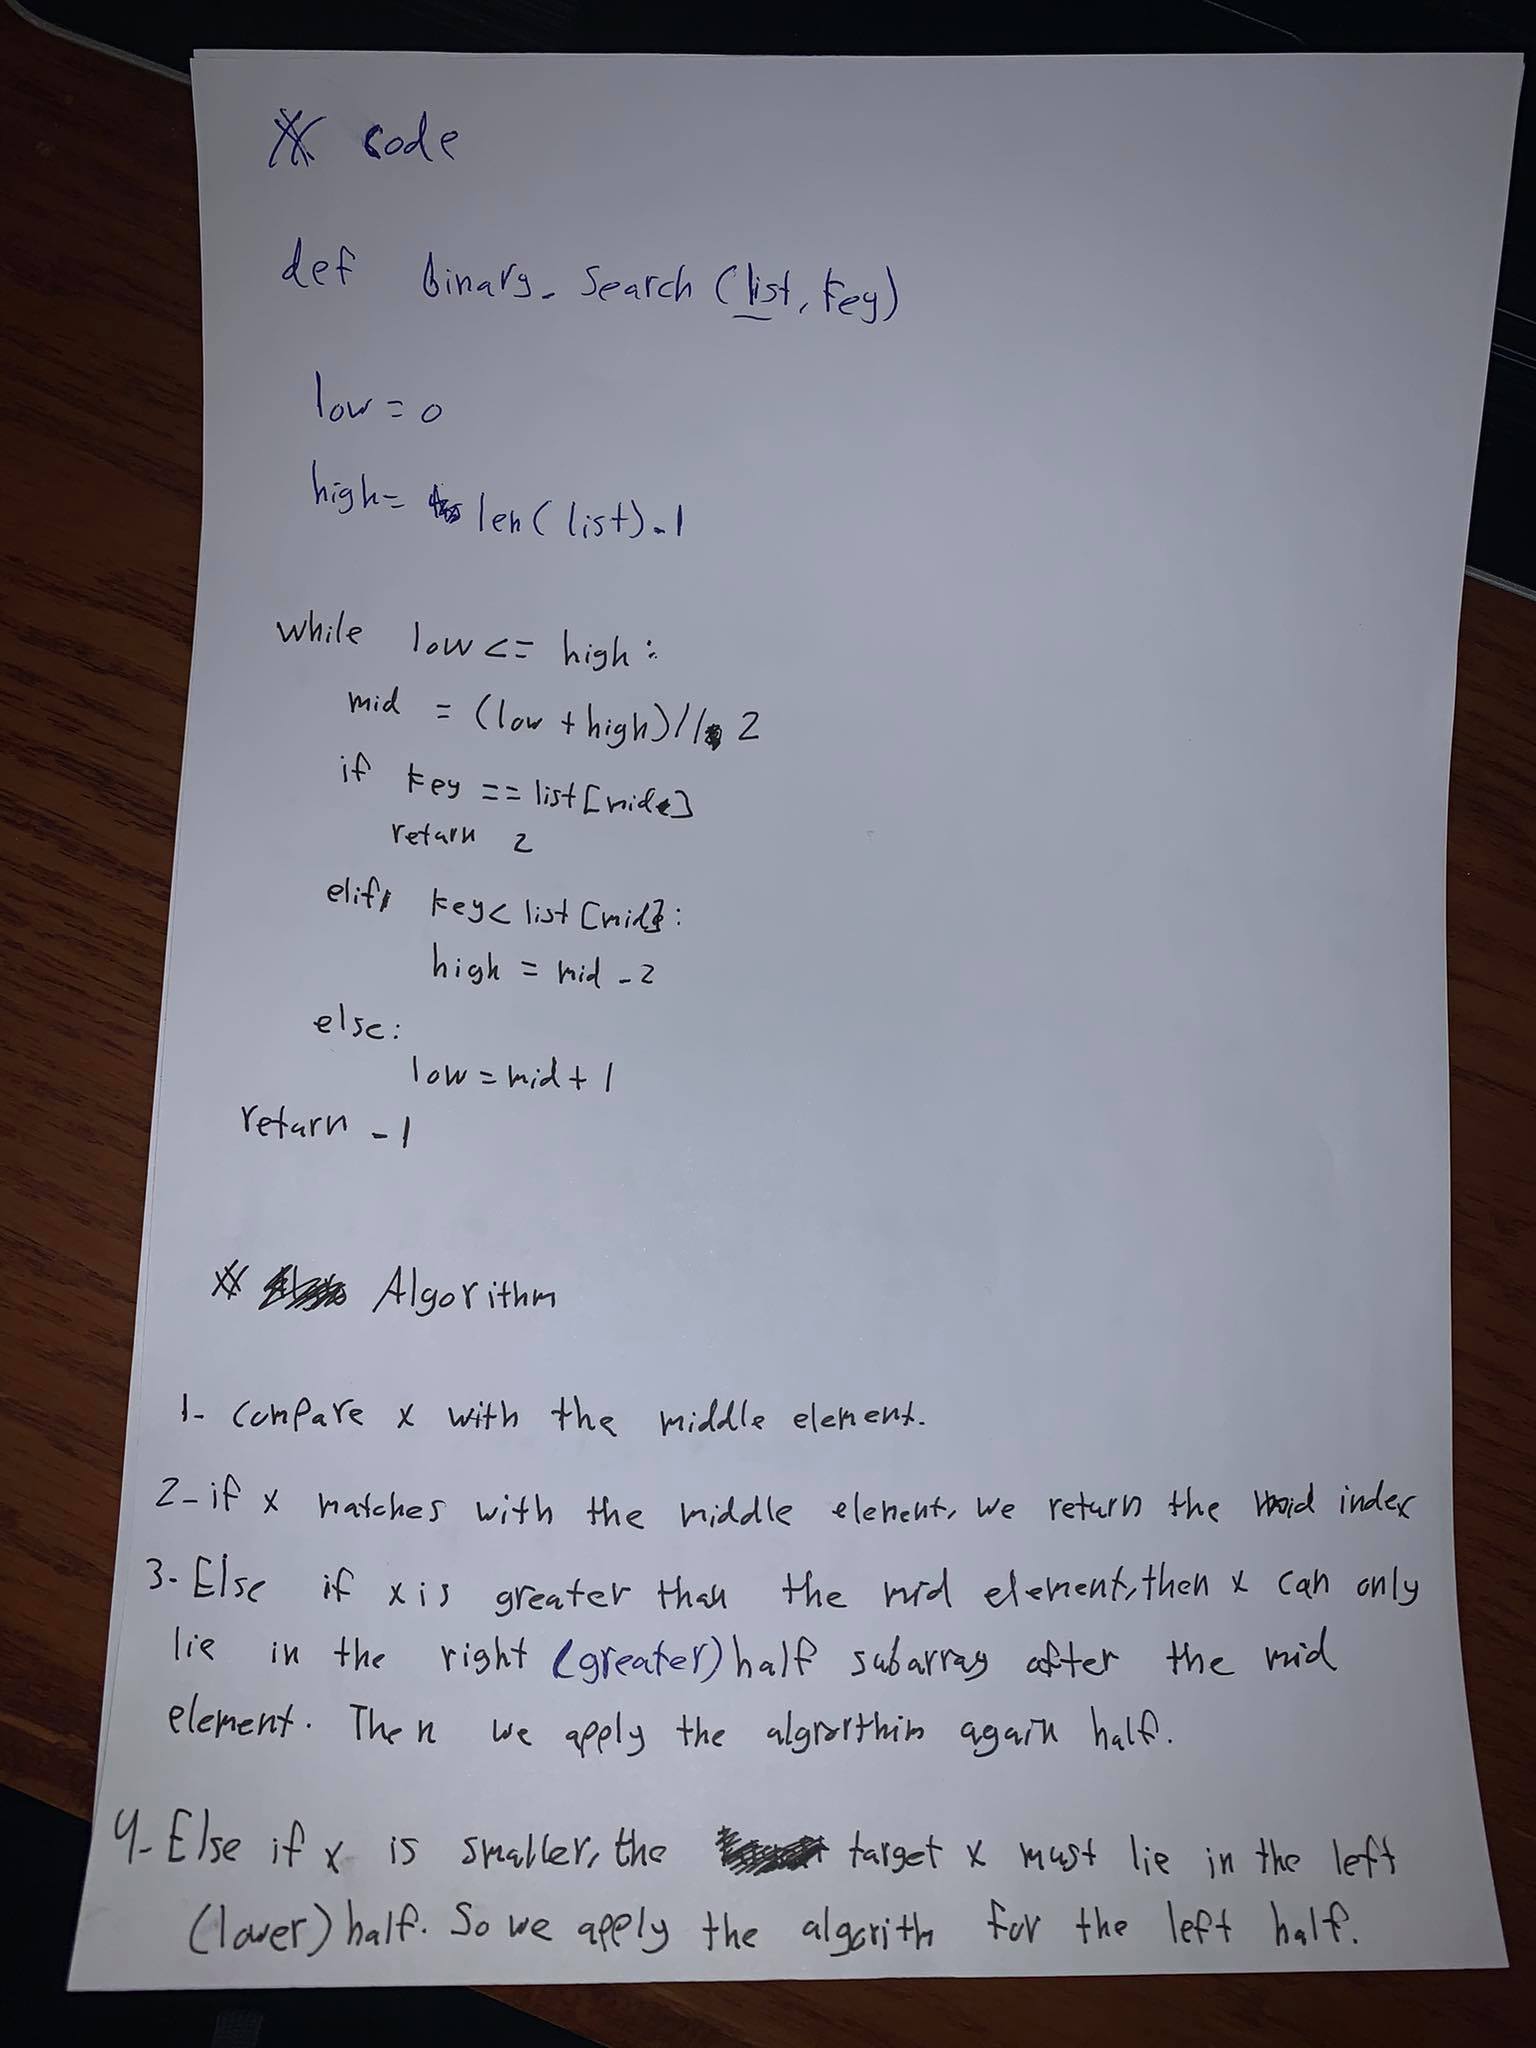 code
def binary_search (list, key)
low = 0
high = len ( list ) - 1
while low <= high :
mid = (low + high) // 2
if key == list [mid]
return 2
elif key < list [mid] :
high = mid - 2
else :
low = mid + 1
return - 1
Algorithm
1- compare x with the middle element.
2- if x matches with the middle element, we return the mid index
3- Else if x is greater than the mid element, then x can only
lie in the right (greater) half subarray after the mid
element. Then we apply the again half.
4- Else if x is smaller, the target x must lie in the left
(lower) half. So we apply the algorith for the left half.